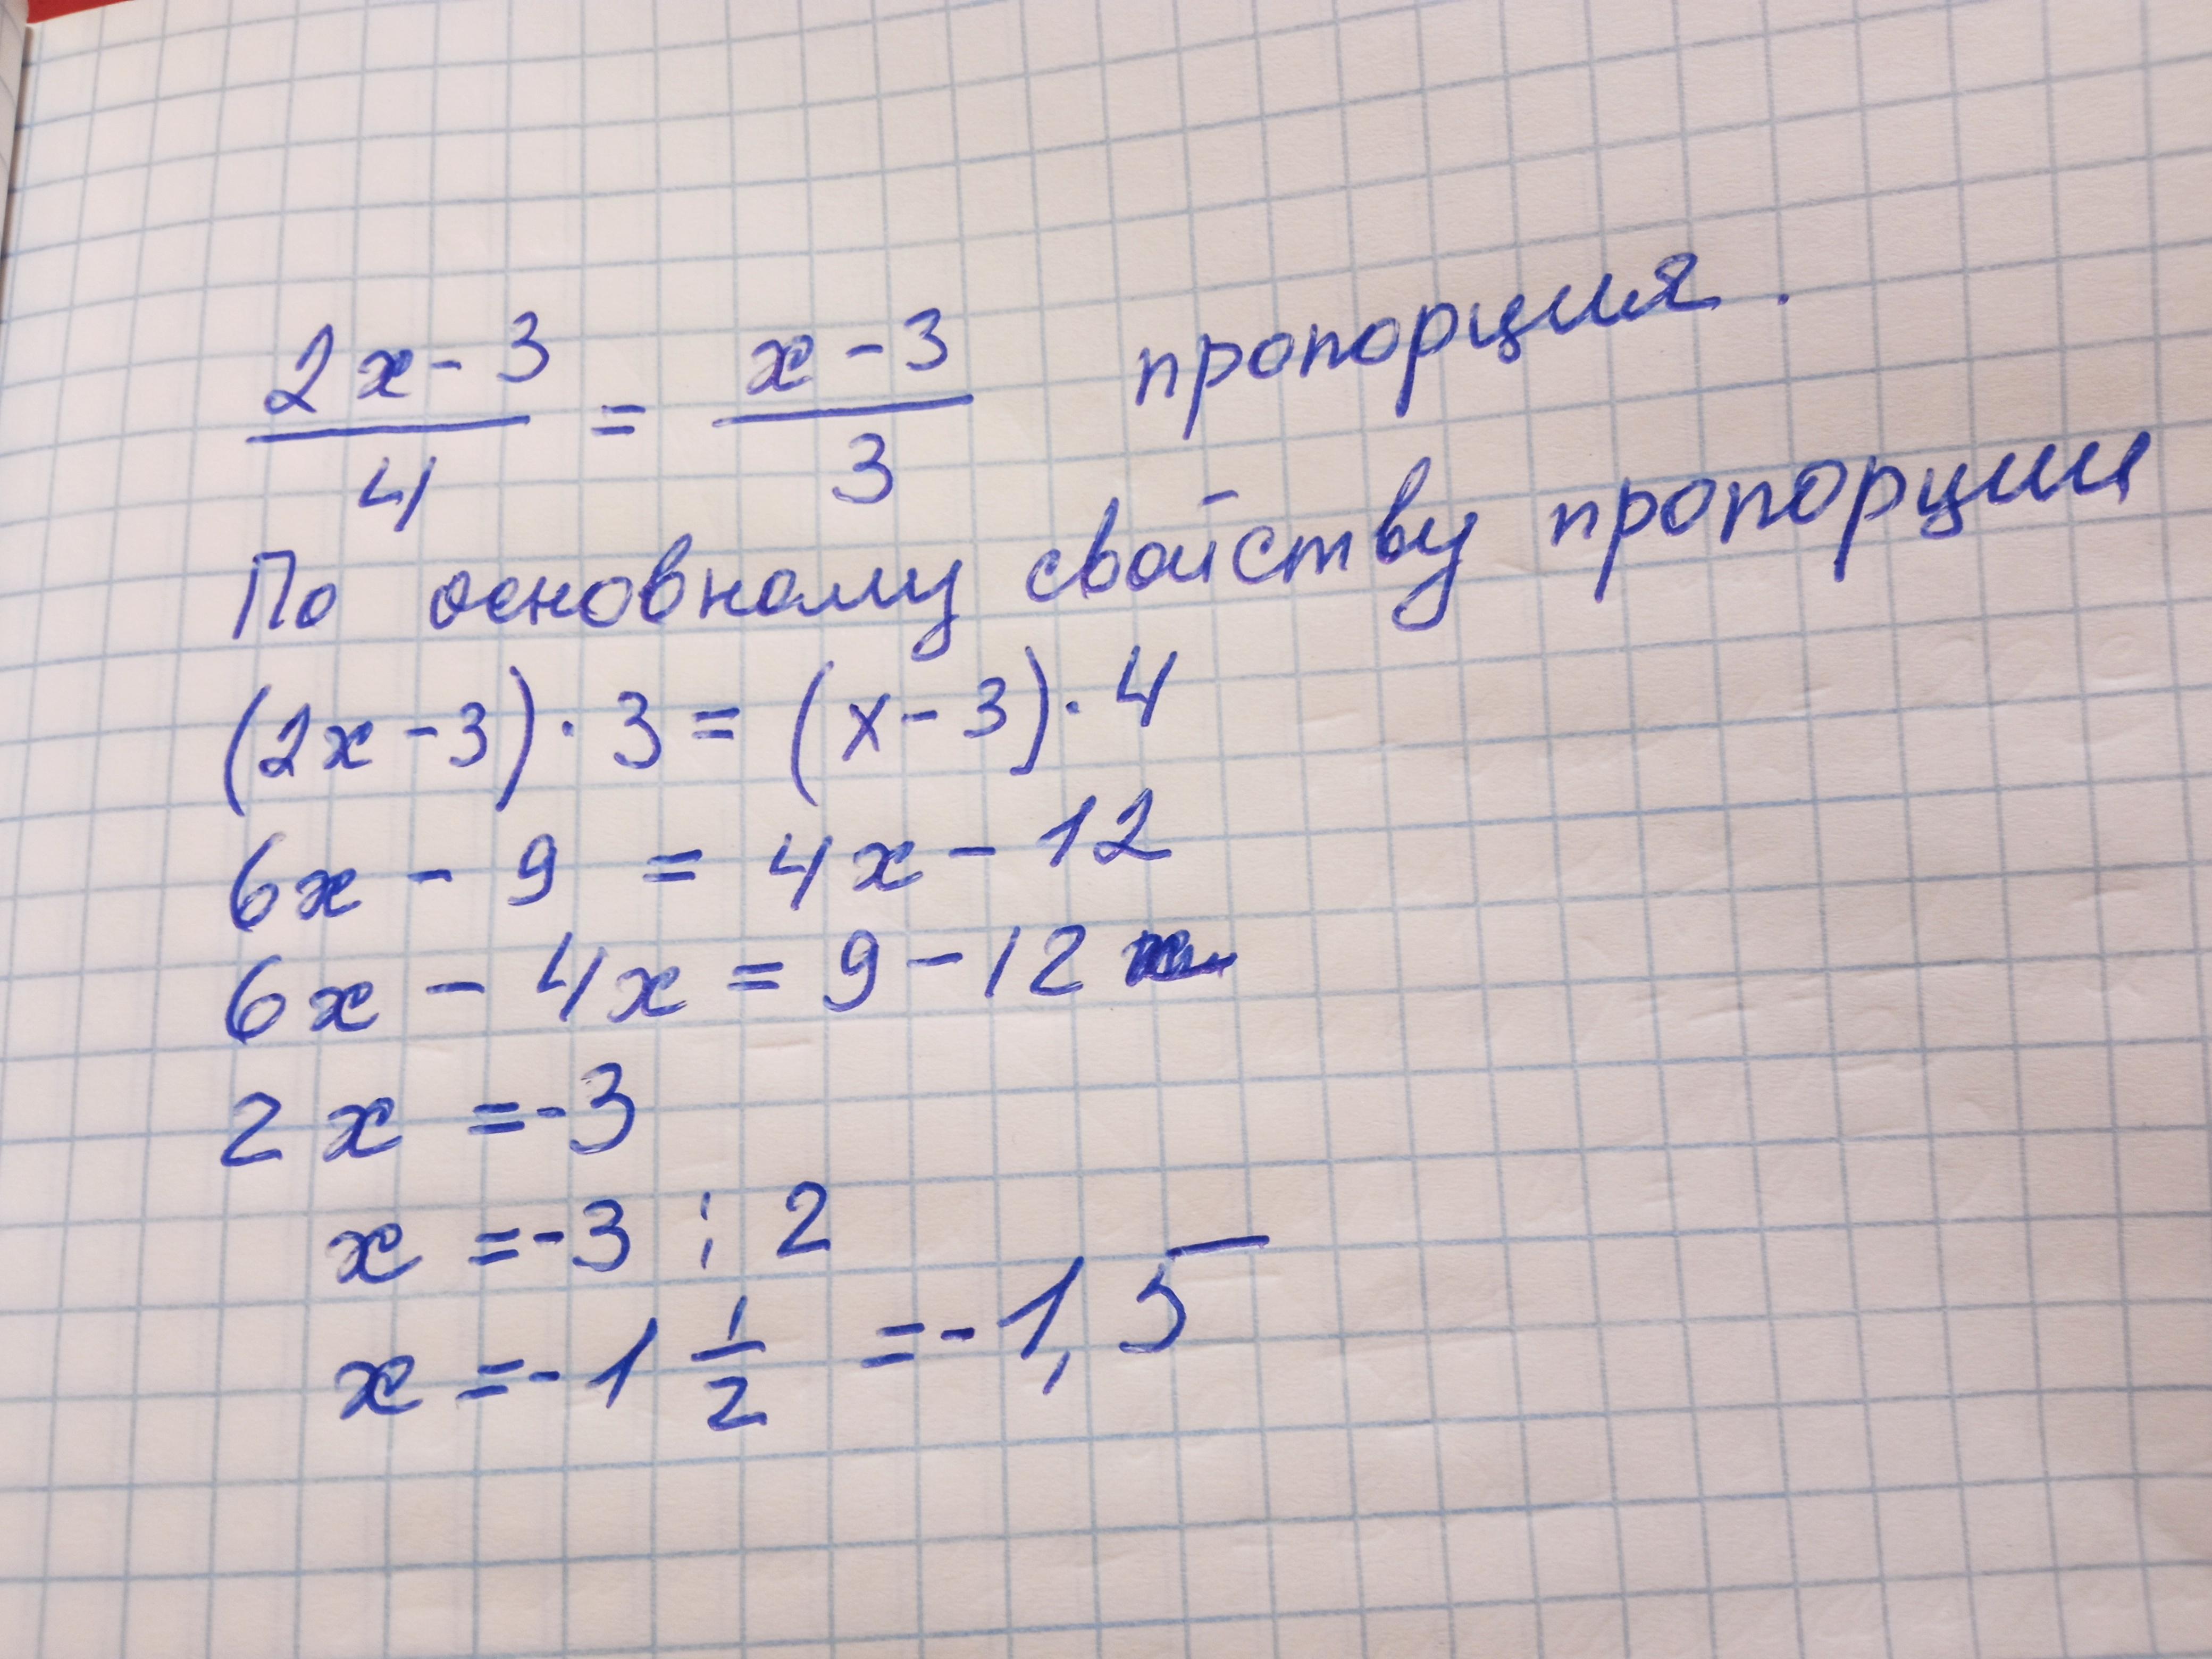 2x-3/4 = x-3/3 пропорция.
По основному свойству пропорции
(2x-3)·3=(x-3)·4
6x-9=4x-12
6x-4x=9-12
2x=-3
x=-3:2
x=-1 1/2=-1,5